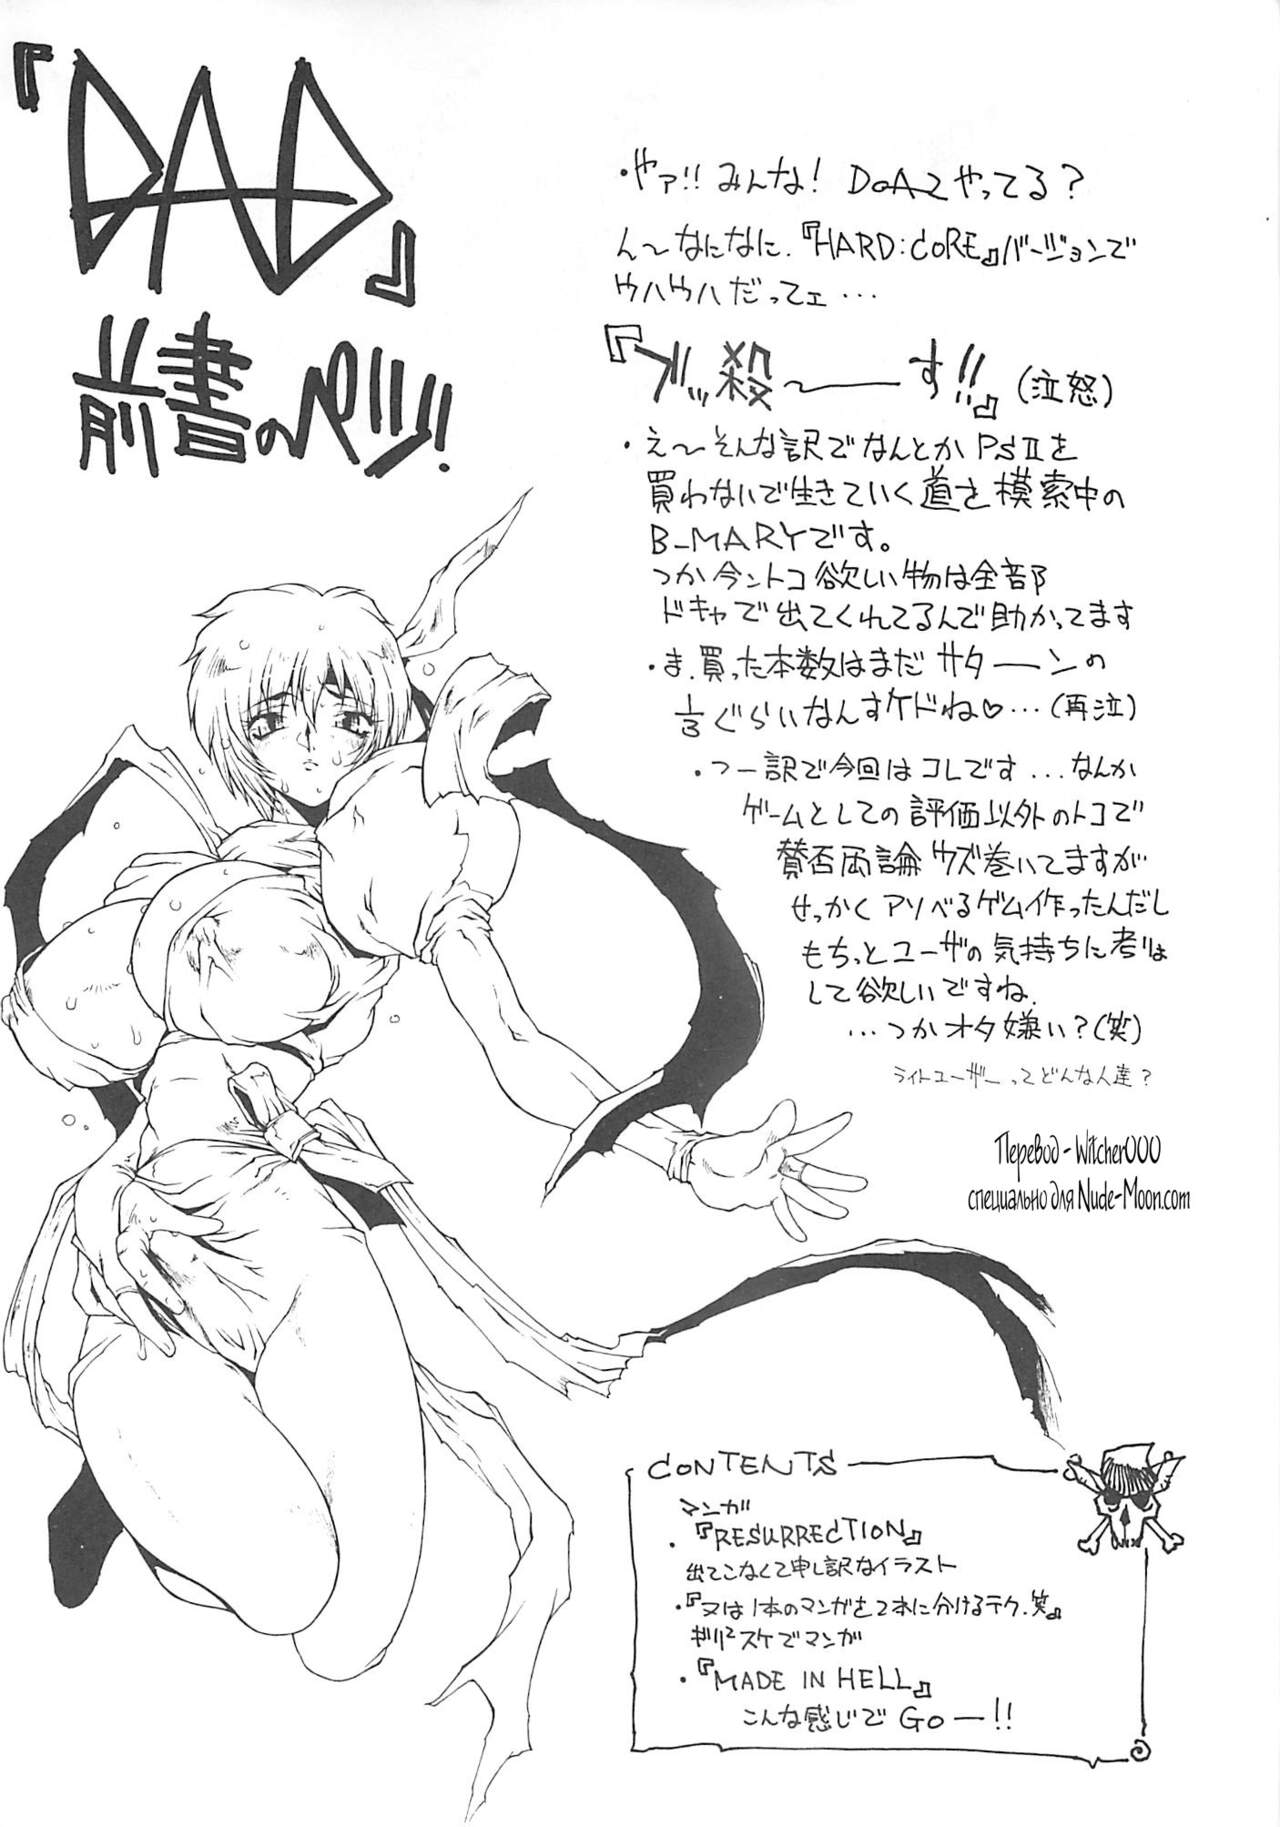 『DAD』
前書のページ!
・やァ!!みんな! DoA2やってる?
ん～なになに.『HARD:CORE』バージョンで
ウハウハだってェ…
『ブッ殺～――す!!』(泣怒)
・え～そんな訳でなんとかPSⅡを
買わないで生きていく道を模索中の
B-MARYです。
つか今ントコ欲しい物は全部
ドキャで出てくれてるんで助かってます
・ま.買った本数はまだサターンの
1/3ぐらいなんすケドね♡…(再泣)
・つー訳で今回はコレです...なんか
ゲームとしての評価以外のトコで
賛否両論ウズ巻いてますが
せっかくアソべるゲーム作ったんだし
もちっとユーザの気持ちに考慮
して欲しいですね.
…つかオタ嫌い?(笑)
ライトユーザーってどんな人達?
Перевод - Witcher000
специально для Nude-Moon.com
CONTENTS
マンガ
・『RESURRECTION』
出てこなくて申し訳なイラスト
・『又は1本のマンガを2本に分けるテク.笑』
ギリ²スケでマンガ
・『MADE IN HELL』
こんな感じでGO―!!